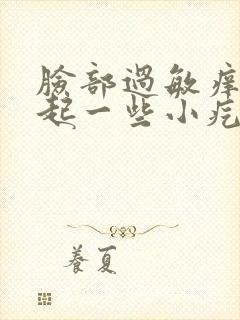 臉部過敏痒
起一些小疙
養夏